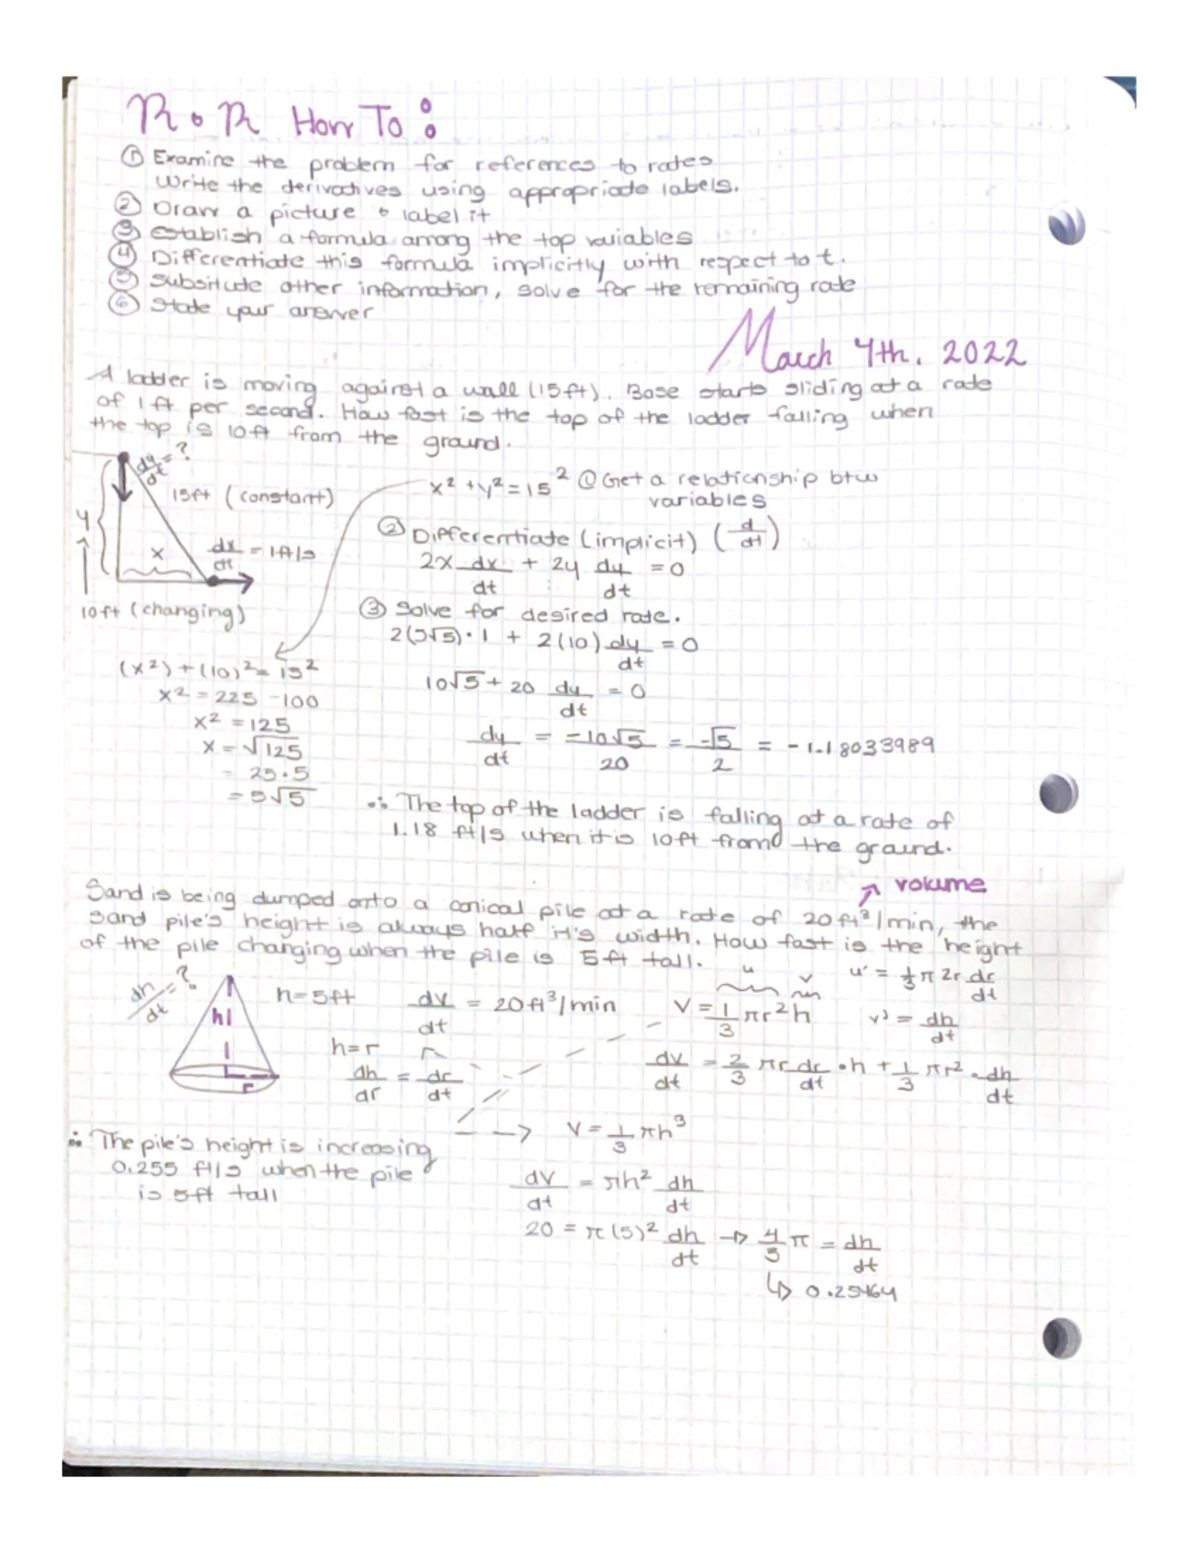 R o R How To :
① Examine the problem for references to rates
Write the derivatives using appropriate labels.
② Draw a picture & label it
③ Establish a formula among the top variables
④ Differentiate this formula implicitly with respect to t.
⑤ Subsitute other information, solve for the remaining rate
⑥ State your answer
March 4th. 2022
A ladder is moving against a wall (15ft). Base starts sliding at a rate
of 1ft per second. How fast is the top of the ladder falling when
the top is 10ft from the ground.
dy/dt = ?
15ft (constant)
y
x
dx/dt = 1ft/s
10ft (changing)
x² + y² = 15² ① Get a relationship btw
variables
② Differentiate (implicit) (d/dt)
2x dx/dt + 2y dy/dt = 0
③ Solve for desired rate.
2(5√5)·1 + 2(10) dy/dt = 0
10√5 + 20 dy/dt = 0
dy/dt = -10√5/20 = -√5/2 = -1.18033989
(x²) + (10)² = 15²
x² = 225 - 100
x² = 125
x = √125
= 25·5
= 5√5
∴ The top of the ladder is falling at a rate of
1.18 ft/s when it is 10ft from the ground.
volume
Sand is being dumped onto a conical pile at a rate of 20ft³/min, the
sand pile's height is always half it's width. How fast is the height
of the pile changing when the pile is 5ft tall.
dh/dt = ?
h
r
h=5ft
dv/dt = 20ft³/min
u v
V = 1/3 πr²h
u' = 1/3 π 2r dr/dt
v' = dh/dt
h=r
dh/dr = dr/dt
dv/dt = 2/3 πr dr/dt · h + 1/3 πr² · dh/dt
V = 1/3 πh³
∴ The pile's height is increasing
0.255 ft/s when the pile
is 5ft tall
dV/dt = πh² dh/dt
20 = π(5)² dh/dt → 4/5 π = dh/dt
↳ 0.25464